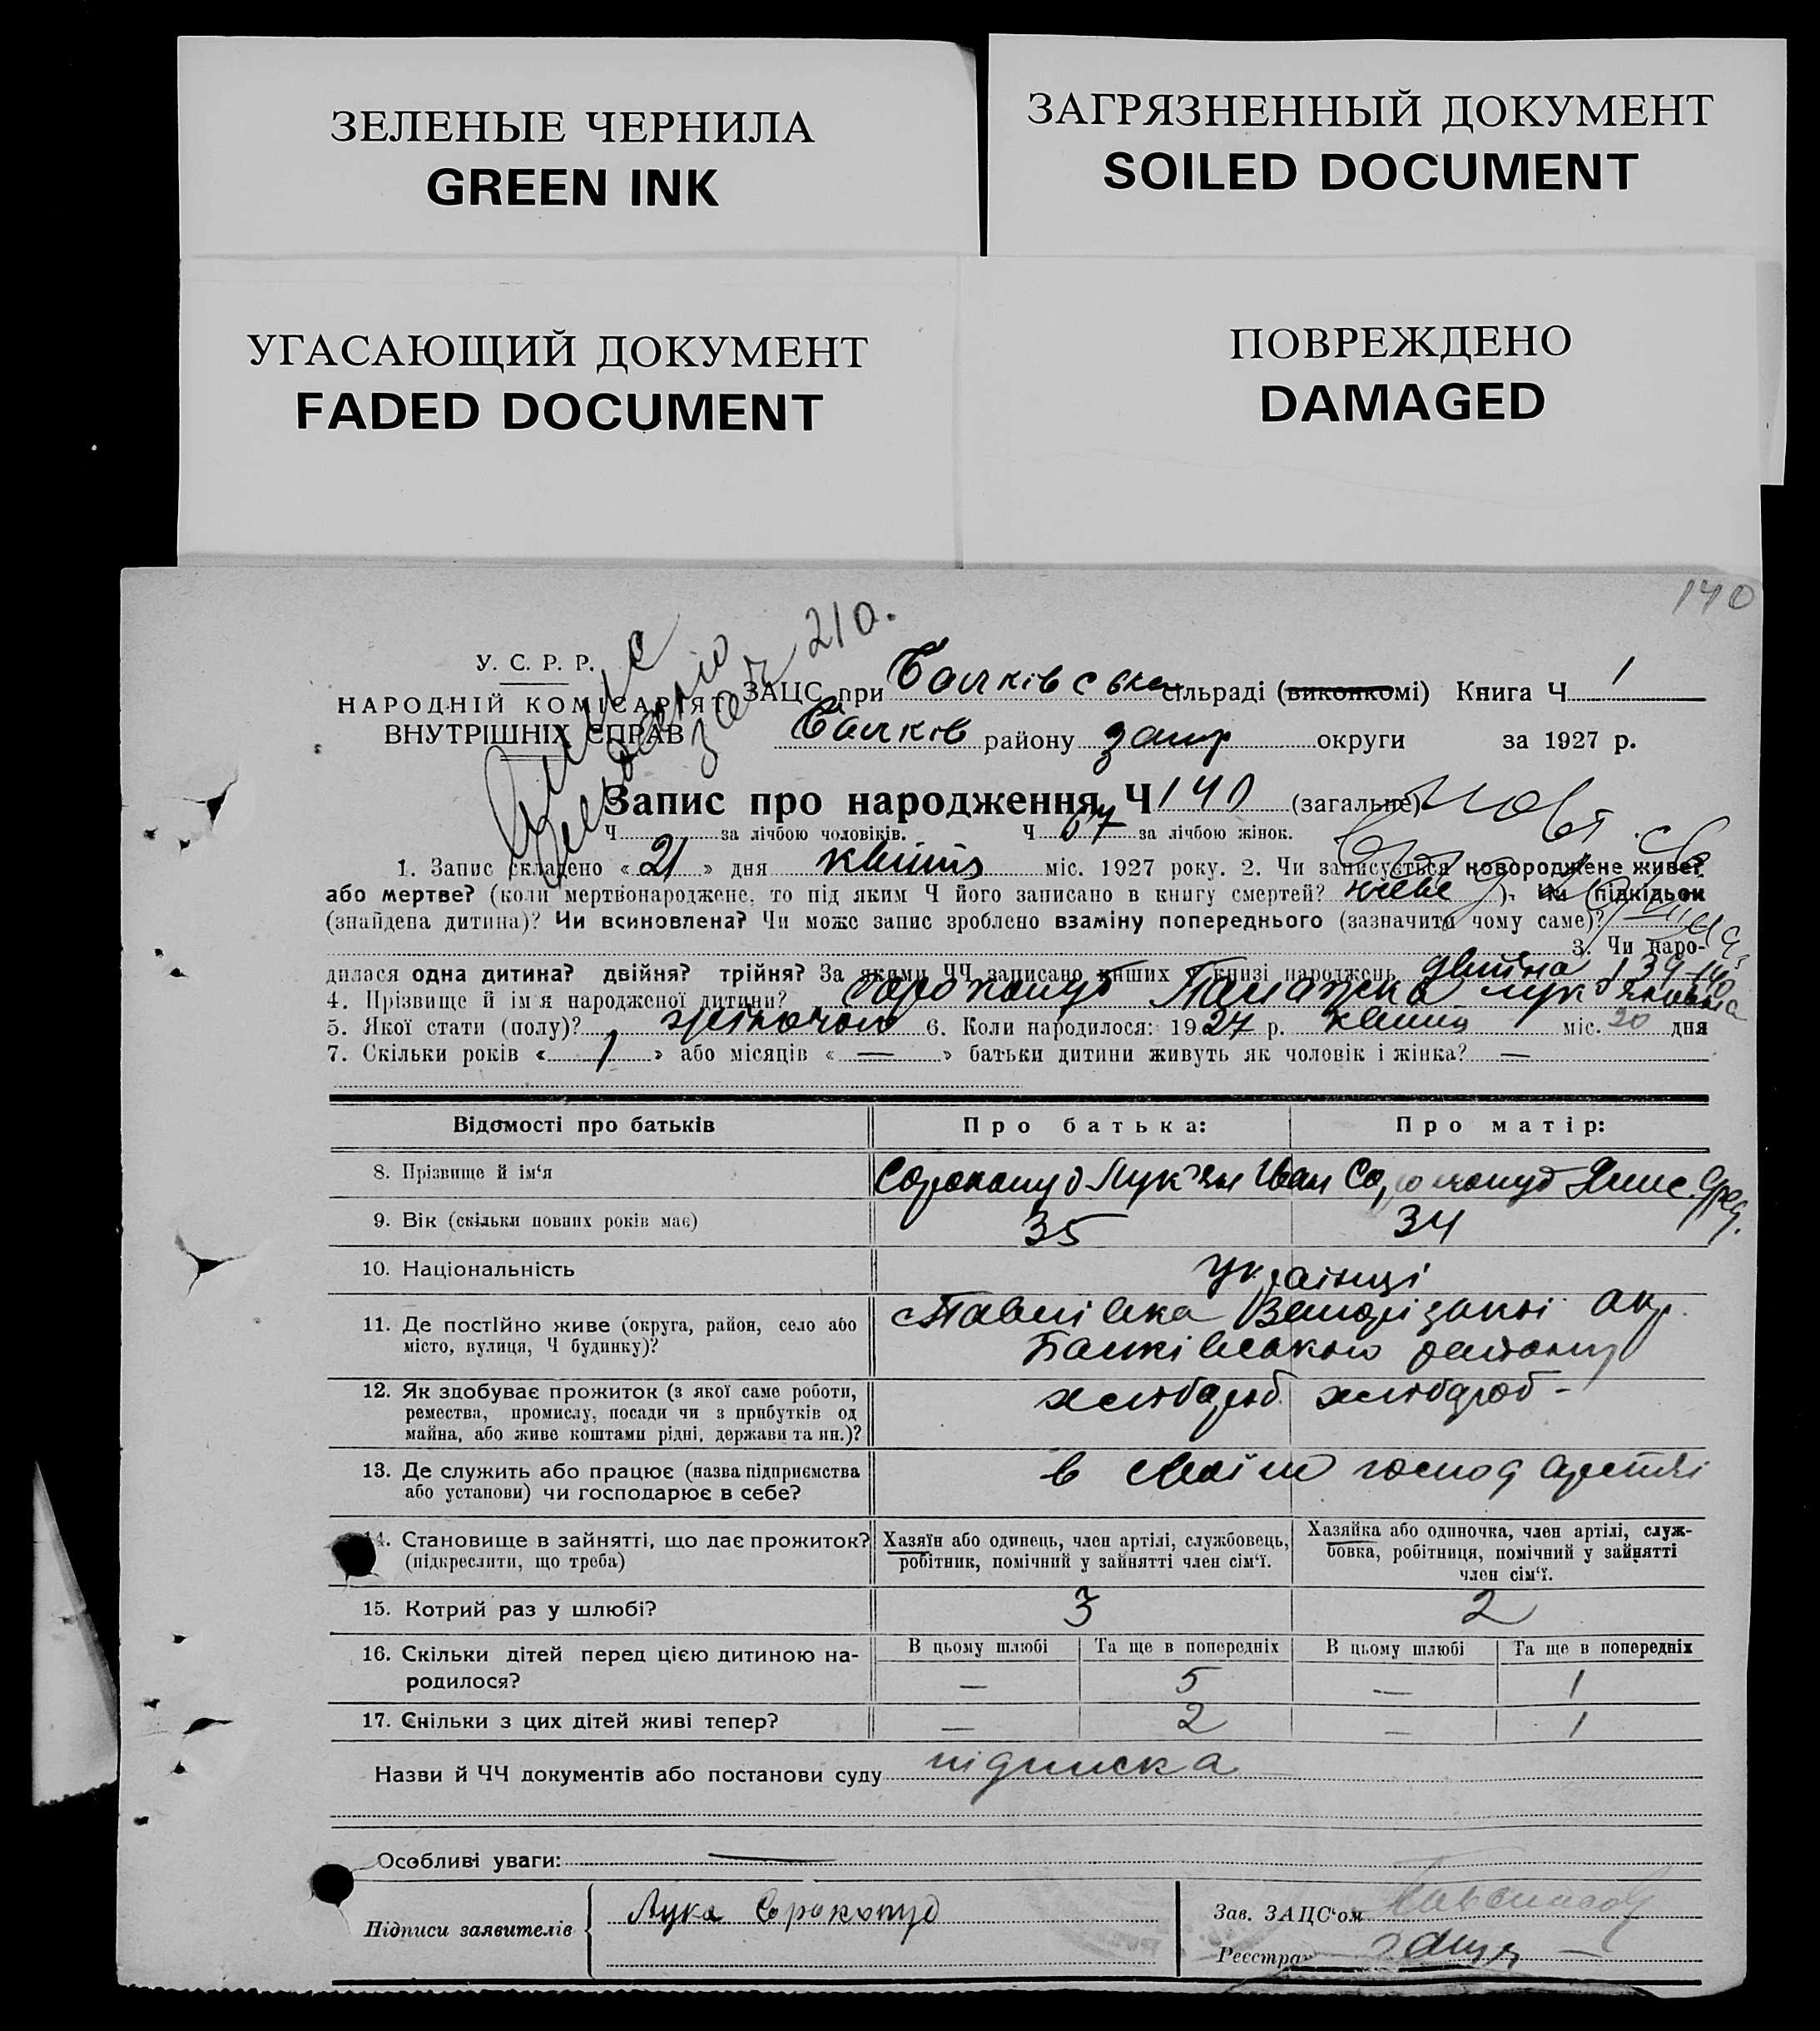 ЗЕЛЕНЫЕ ЧЕРНИЛА
GREEN INK
ЗАГРЯЗНЕННЫЙ ДОКУМЕНТ
SOILED DOCUMENT
УГАСАЮЩИЙ ДОКУМЕНТ
FADED DOCUMENT
ПОВРЕЖДЕНО
DAMAGED
140
У. С. Р. Р.
НАРОДНІЙ КОМІСАРІЯТ
ВНУТРІШНІХ СПРАВ
210.
ЗАЦС при Балківська сільраді (виконкомі) Книга Ч 1
Балків району запор округи за 1927 р.
Запис про народження Ч 140 (загальне)
Ч за лічбою чоловіків. Ч 67 за лічбою жінок.
1. Запис складено « 21 » дня квітня міс. 1927 року. 2. Чи записується новороджене живе?
або мертве? (коли мертвонароджене, то під яким Ч його записано в книгу смертей? живе ). Чи підкідьок
(знайдена дитина)? Чи всиновлена? Чи може запис зроблено взаміну попереднього (зазначити чому саме)?
3. Чи наро-
дилася одна дитина? двійня? трійня? За якими ЧЧ записано инших в книзі народжень двійня 139-140
4. Прізвище й ім'я народженої дитини? Сорокопуд Палажка Лук'янівна
5. Якої стати (полу)? жіночою 6. Коли народилося: 1927 р. квітня міс. 20 дня
7. Скільки років « 1 » або місяців « — » батьки дитини живуть як чоловік і жінка? —
Відомості про батьків
Про батька:
Про матір:
8. Прізвище й ім'я
Сорокопуд Лук'ян Іван
Сорокопуд
9. Вік (скільки повних років має)
35
34
10. Національність
українці
11. Де постійно живе (округа, район, село або
місто, вулиця, Ч будинку)?
окр.
Балківського району
12. Як здобуває прожиток (з якої саме роботи,
ремества, промислу, посади чи з прибутків од
майна, або живе коштами рідні, держави та ин.)?
хлібороб
хлібороб -
13. Де служить або працює (назва підприємства
або установи) чи господарює в себе?
в своїм господарстві
14. Становище в зайнятті, що дає прожиток?
(підкреслити, що треба)
Хазяїн або одинець, член артілі, службовець,
робітник, помічний у зайнятті член сім'ї.
Хазяйка або одиночка, член артілі, служ-
бовка, робітниця, помічний у зайнятті
член сім'ї.
15. Котрий раз у шлюбі?
3
2
16. Скільки дітей перед цією дитиною на-
родилося?
В цьому шлюбі
Та ще в попередніх
В цьому шлюбі
Та ще в попередніх
—
5
—
1
17. Скільки з цих дітей живі тепер?
—
2
—
1
Назви й ЧЧ документів або постанови суду підписка
Особливі уваги: —
Підписи заявителів
Лука Сорокопуд
Зав. ЗАЦС'ом
Реєстра